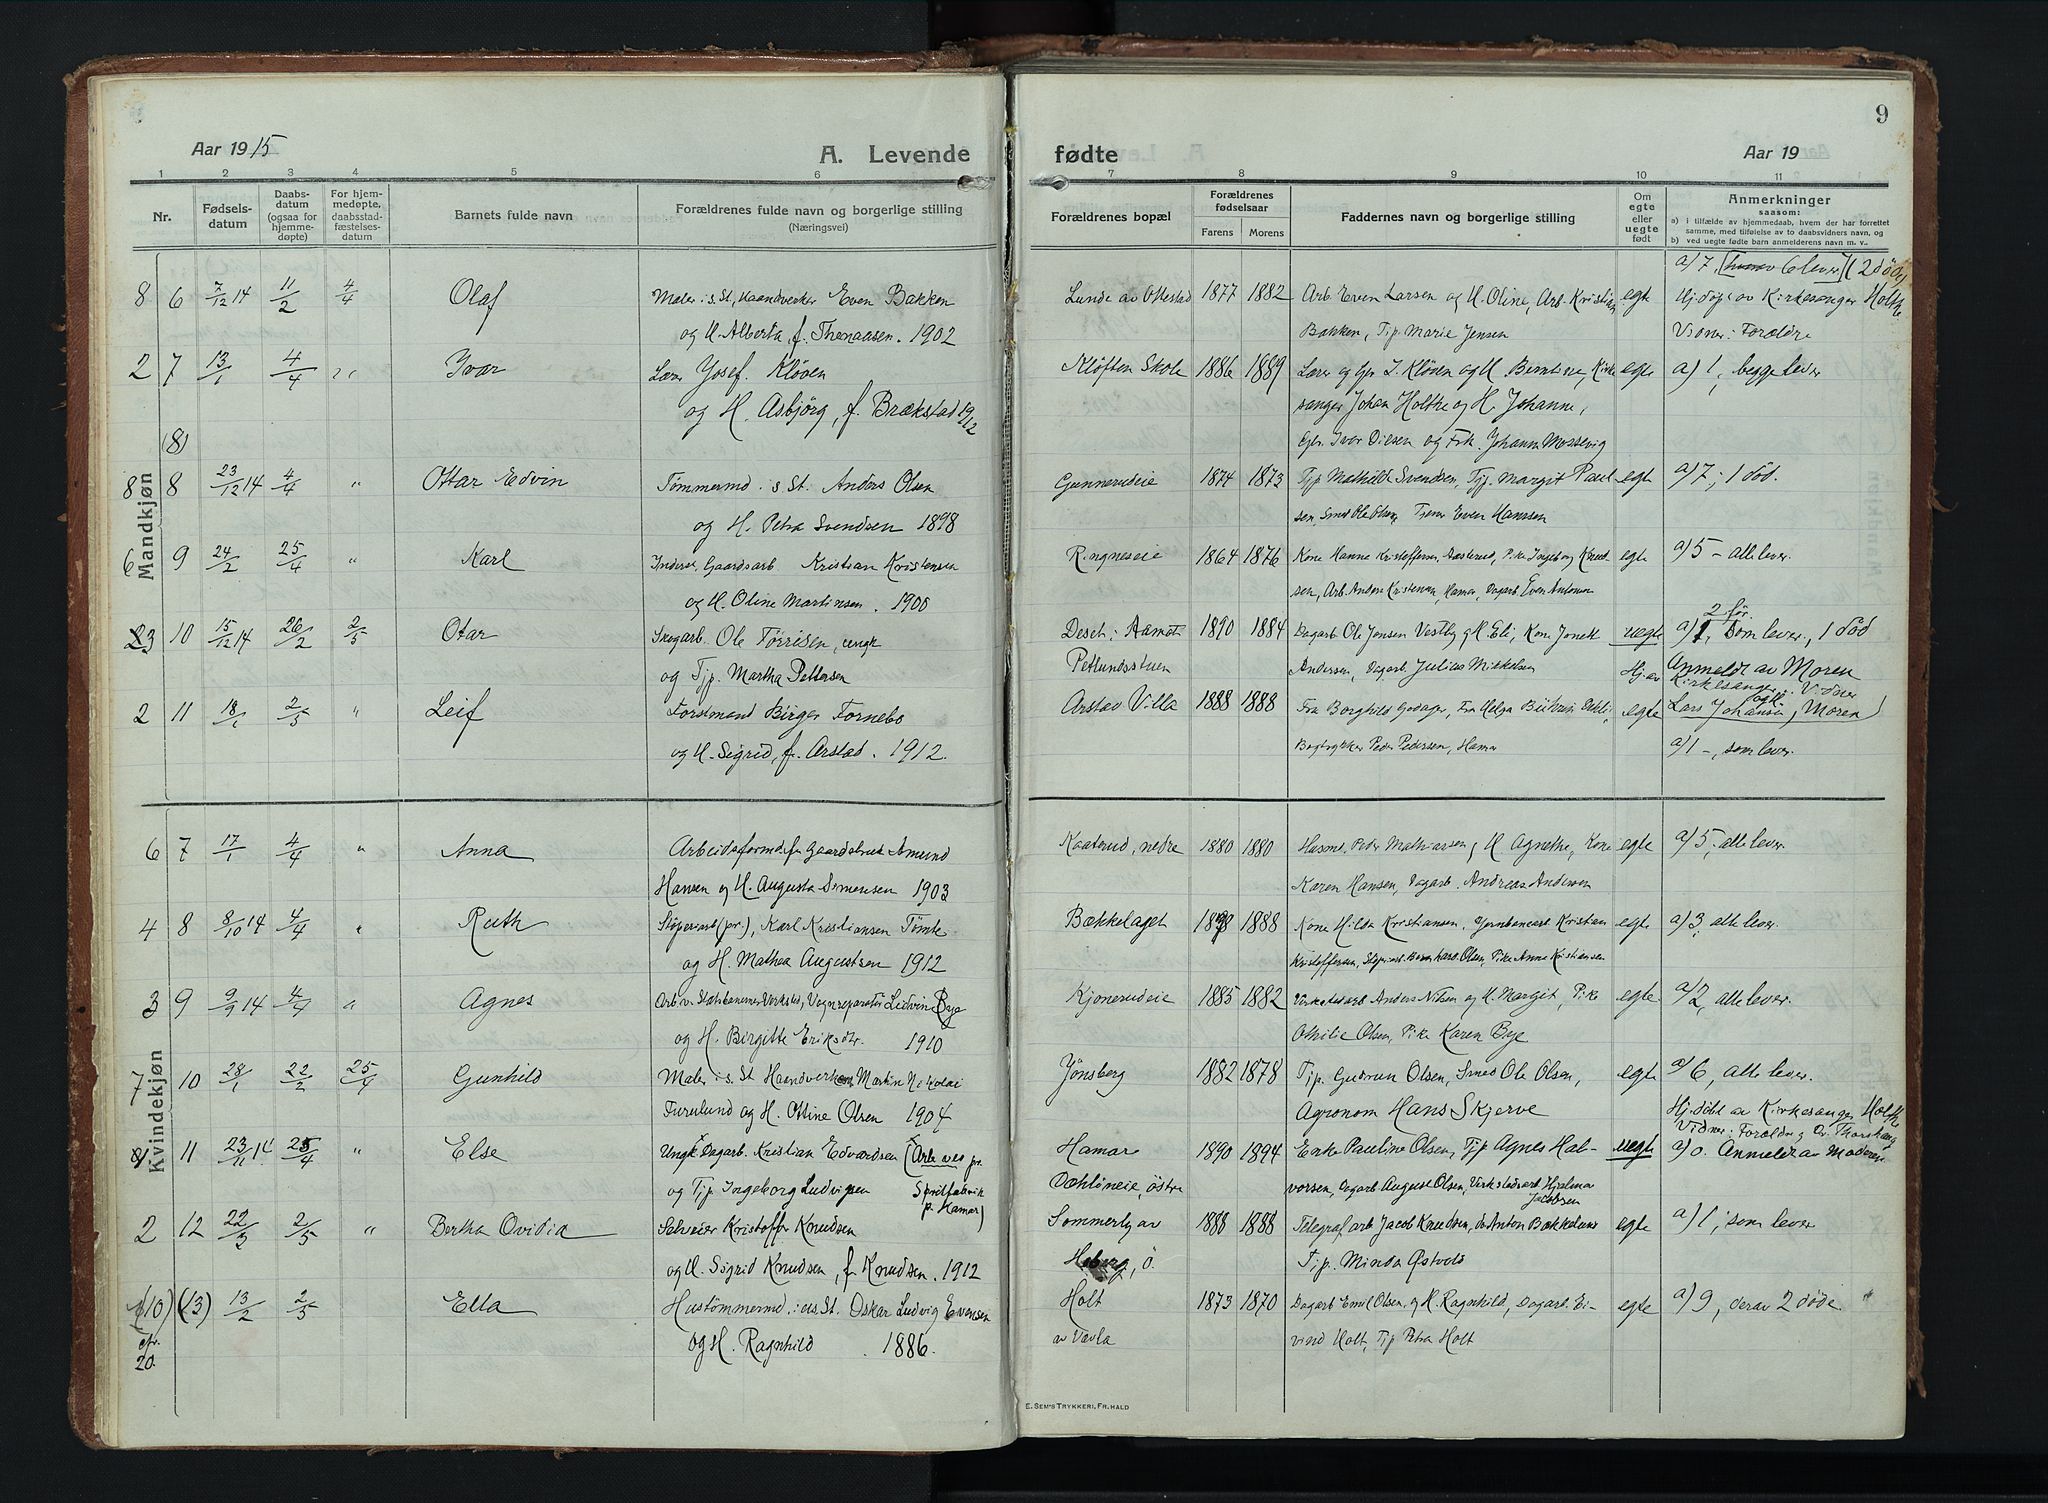 9
Aar 1915
A. Levende
fødte
Aar 19
1 2 3 4 5 6 7 8 9 10 11
Nr.
Fødsels-
datum
Daabs-
datum
(ogsaa for
hjemme-
døpte)
For hjem-
medøpte,
daabsstad-
fæstelses-
datum
Barnets fulde navn
Forældrenes fulde navn og borgerlige stilling
(Næringsvei)
Forældrenes bopæl
Forældrenes
fødselsaar
Farens Morens
Faddernes navn og borgerlige stilling
Om
egte
eller
uegte
født
Anmerkninger
saasom:
a) i tilfælde av hjemmedaab, hvem der har forrettet
samme, med tilføielse av to daabsvidners navn, og
b) ved uegte fødte barn anmelderens navn m. v.
Mandkjøn
a) 7, 6 lever (2 døde)
8 6 7/12 14 11/2 4/4 Olaf Maler i s. St., Haandverker Even Bakken Lunde av Ottestad 1877 1882 Arb. Even Larsen og H. Oline, Arb. Kristian egte Hj.døpt av Kirkesanger Holthe
og H. Alberta, f. Thomassen. 1902 Bakken, Tjp Marie Jensen Vidner: Forældre
2 7 13/1 4/4 " Ivar Lærer Josef Kløven Kløften Skole 1886 1889 Lærer og Gbr. I. Kløven og H. Berntine, Kirke egte a) 1, begge lever
og H. Asbjörg, f. Brækstad 1912 sanger Johan Holthe og H. Johanne,
(8) Gbr. Ivar Diesen og Frk. Johanna Mossevig
8 8 23/12 14 4/4 " Ottar Edvin Tømmermd. i s. St. Anders Olsen Gunnerudeie 1874 1873 Tjp Mathilde Svendsen, Tjp. Margit Paul- egte a) 7; 1 død.
og H. Petra Svendsen 1898 sen, Smed Ole Olsen, Even Hanssen
6 9 24/2 25/4 " Karl Inderst, Gaardsarb Kristian Kristensen Ringneseie 1864 1876 Kone Hanne Kristoffersen, Aasterud, Pike Ingeborg Knud- egte a) 5 - alle lever.
og H. Oline Martinsen. 1900 sen, Arb. Anders Kristensen, Hamar, Dagarb. Even Antonsen
23 10 15/12 14 26/2 2/5 Otar Skogarb. Ole Törrisen, ungk Deset i Aamot 1890 1884 Dagarb Ole Jensen Vestby og H. Eli, Kone Jonek uegte a) 1, som lever, 1 død
2 før
og Tjp. Martha Pettersen Petlundsstuen Andersen, Dagarb. Julius Mickelsen Hj. av Anmeldt av Moren
Kirkesanger Vidner
2 11 18/1 2/5 " Leif Forstmand Birger Fornebo Arstad Villa 1888 1888 Fru Borghild Godager, Fru Helga egte Lars Johansen, og Moren)
og H. Sigrid, f. Arstad. 1912. Bogtrykker Peder Pedersen, Hamar a) 1 -, som lever.
Kvindekjøn
6 7 17/1 4/4 " Anna Arbeidsformd. fr Gaardsbruk Amund Kaaterud, nedre 1880 1880 Husmd. Peder Mathiassen og H Agnethe, Kone egte a) 5, alle lever.
Hansen og H. Augusta Simensen 1903 Karen Hansen, Dagarb. Andreas Andersen
4 8 8/10 14 4/4 " Ruth Støperiarb (pr.), Karl Kristiansen Tömte Bækkelaget 1888 Kone Hilda Kristiansen, Jernbanearb. Kristian egte a) 3, alle lever.
og H. Mathea Augustsen 1912 Kristoffersen, Støperiarb. Bernhard Olsen, Pike Anne Kristiansen
3 9 9/9 14 4/4 " Agnes Arb. v. Statsbanernes Verksted, Vognreparatør Lidvin Bye Kjonerudeie 1885 1882 Verkstedarb Anders Nilsen og H. Margit, Pike egte a) 2, alle lever.
og H. Birgitte Eriksdtr. 1910 Othilie Olsen, Pike Karen Bye
7 10 28/1 22/2 25/4 Gunhild Maler i s. St Haandverker Martin Nikolai Jönsberg 1882 1878 Tjp. Gudrun Olsen, Smed Ole Olsen, egte a) 6, alle lever.
Furulund og H. Ottine Olsen 1904 Agronom Hans Skjerve Hj.døbt av Kirkesanger Holthe
Vidner: Forældre
11 23/11 14 25/4 " Else Ungk Dagarb. Kristian Edvardsen (Arb ved pr. Hamar 1890 1894 Enke Pauline Olsen, Tjp Agnes Hal- uegte a) 0. Anmeldt av Moderen
og Tjp Ingeborg Ludvigsen Spritfabrik Dæhlöneie, östre vorsen, Dagarb August Olsen, Verkstedarb Hjalmar
p. Hamar) Jacobsen
2 12 22/3 2/5 " Bertha Ovidia Selveier Kristoffer Knudsen Sommerly av 1888 1888 Telegrafarb Jacob Knudsen, do Anton Bækkelund egte a) 1; som lever
og H. Sigrid Knudsen, f. Knudsen. 1912 Hoberg, ö. Tjp. Minda Østvold
(10) (13) 13/2 2/5 Ella Hustömmermd. i us St. Oskar Ludvig Evensen Holt 1873 1870 Dagarb Emil Olsen, og H. Ragnhild, Dagarb. Ei- egte a) 9, derav 2 døde.
20 og H. Ragnhild 1886. av Vævla vind Holt, Tjp Petra Holt
E. SEM'S TRYKKERI, FR. HALD